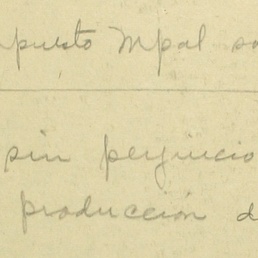 puesto Mpal so
sin perjuicio
producción d